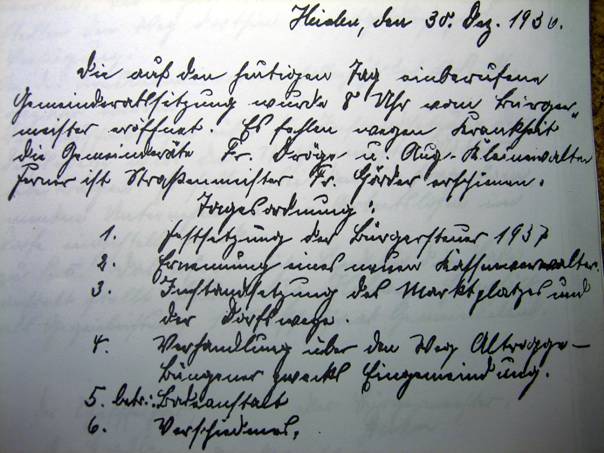 Heiden, den 30. Dez. 1936.
Die auf den heutigen Tag einberufene
Gemeinderatssitzung wurde 8 Uhr vom Bürger-
meister eröffnet. Es fehlen wegen Krankheit
die Gemeinderäte Fr. Dröge u. Aug. Kleinewalter
Ferner ist Straßenmeister Fr. Görder erschienen.
Tagesordnung:
1. Festsetzung der Bürgersteuer 1937
2. Ernennung eines neuen Kassenverwalter.
3. Instandsetzung des Marktplatzes und
der Dorfwege.
4. Verhandlung über den Weg Altrogge-
Büngener zwecks Eingemeindung.
5. betr.: Badeanstalt
6. Verschiedenes.